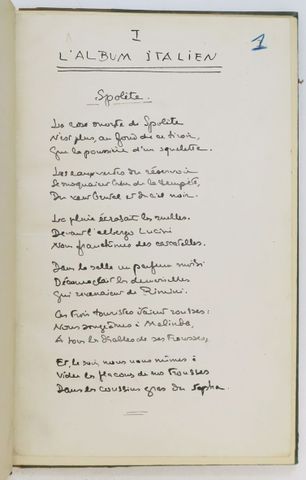 I
L'ALBUM ITALIEN
1
Spolète.
La rose morte de Spolète
N'est plus, au fond de ce tiroir,
Que la poussière d'un squelette.
Les eaux vertes du réservoir
Se moquaient de la tempête,
Du vent brutal et du ciel noir.
La pluie écrasait les ruelles.
Devant l'albergo Lucini
Nous franchîmes des cascatelles.
Dans la salle un parfum moisi
Dénonçait les demoiselles
Qui revenaient de Rimini.
Ces trois touristes étaient rousses :
Nous songeâmes à Melinda,
A tous les diables de ses trousses,
Et le soir nous nous mîmes à
Vider les flacons de nos trousses
Dans les coussins gras du sopha.